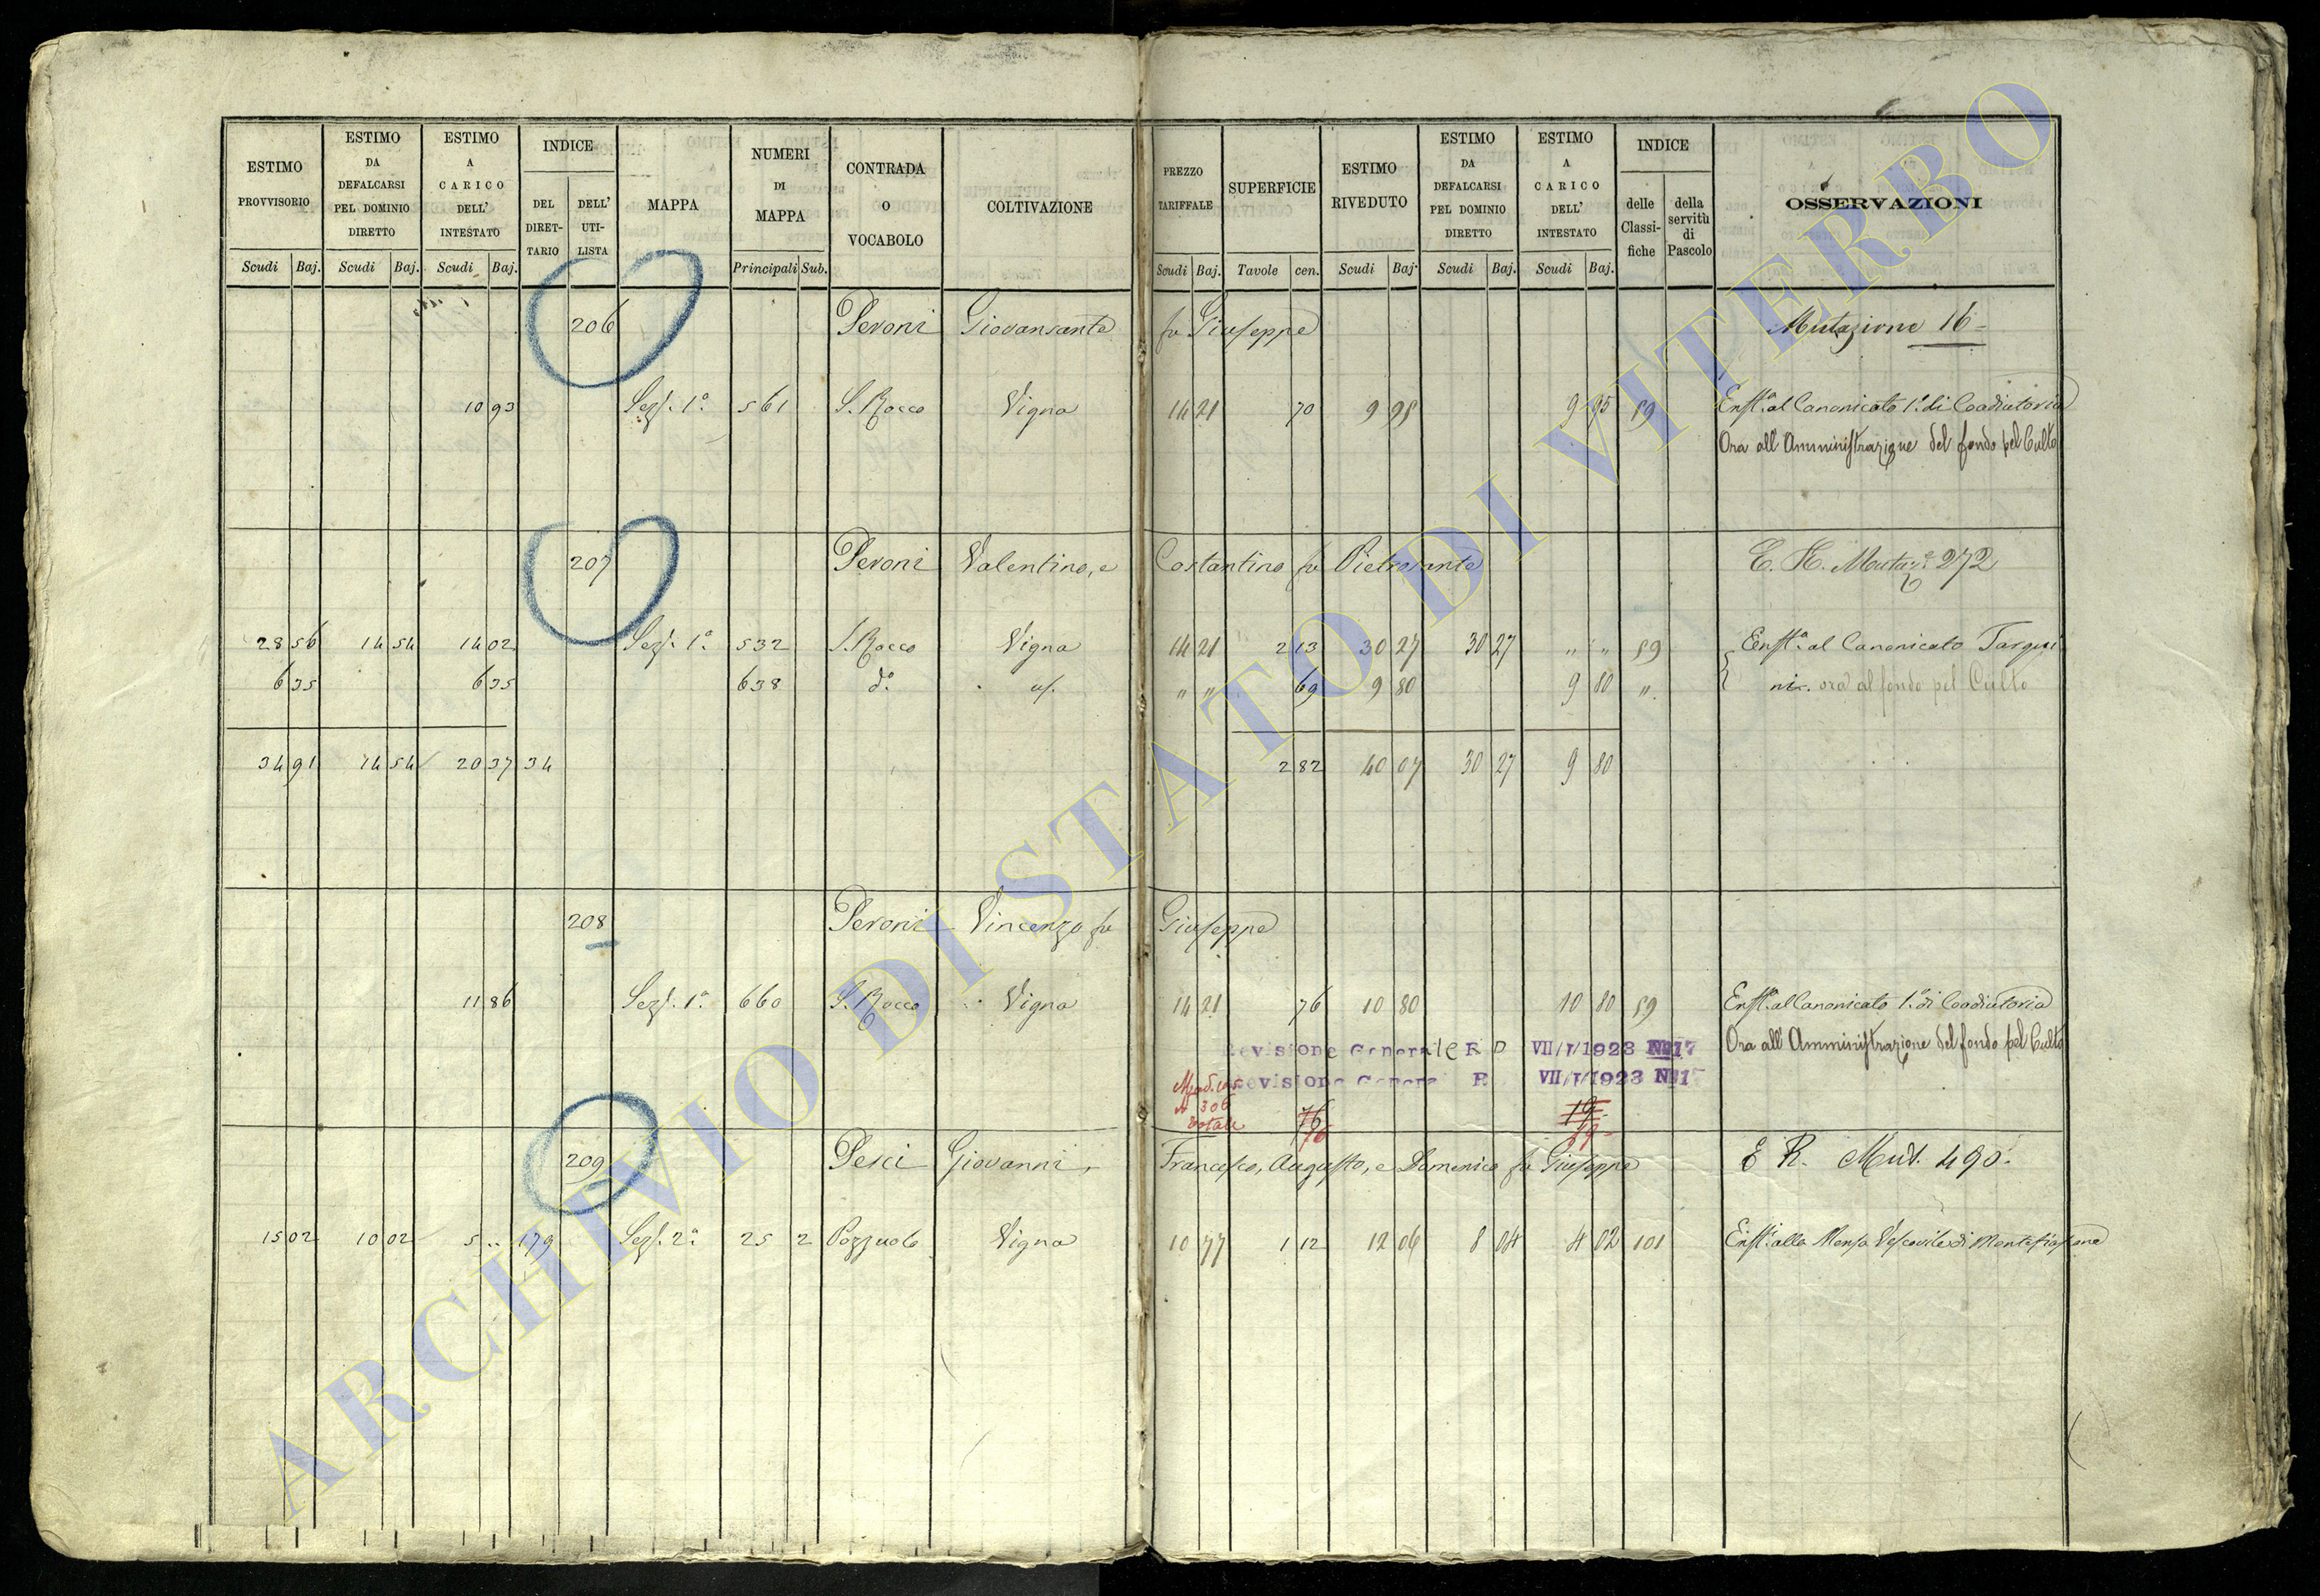 ESTIMO PROVVISORIO | ESTIMO DA DEFALCARSI PEL DOMINIO DIRETTO | ESTIMO A CARICO DELL' INTESTATO | INDICE | MAPPA | NUMERI DI MAPPA | CONTRADA O VOCABOLO | COLTIVAZIONE | PREZZO TARIFFALE | SUPERFICIE | ESTIMO RIVEDUTO | ESTIMO DA DEFALCARSI PEL DOMINIO DIRETTO | ESTIMO A CARICO DELL' INTESTATO | INDICE | OSSERVAZIONI
DEL DIRETTARIO | DELL' UTILISTA | delle Classifiche | della servitù di Pascolo
Scudi | Baj. | Scudi | Baj. | Scudi | Baj. | Principali | Sub. | Scudi | Baj. | Tavole | cen. | Scudi | Baj. | Scudi | Baj. | Scudi | Baj.
206 Peroni Giovansante fu Giuseppe Mutazione 16
10 93 Sez. 1a 561 S. Rocco Vigna 14 21 70 9 95 9 95 59 Enfta al Canonicato 1o di Coadiutoria
Ora all'Amministrazione del fondo pel Culto
207 Peroni Valentino, e Costantino fu Pietrosante 272
28 56 14 54 14 02 Sez. 1a 532 S. Rocco Vigna 14 21 2 13 30 27 30 27 " " 59 Enfta al Canonicato Tarqui
6 35 6 35 638 do " " 69 9 80 9 80 " ni. ora al fondo pel Culto
34 91 14 54 20 37 34 2 82 40 07 30 27 9 80
208 Peroni Vincenzo fu Giuseppe
11 86 Sez. 1a 660 S. Rocco Vigna 14 21 76 10 80 10 80 59 Enfta al Canonicato 1o di Coadiutoria
Ora all'Amministrazione del fondo pel Culto
Revisione Generale R D VII/I/1923 No 17
Revisione General R VII/I/1923 No 17
306
Totale 76
76
209 Pesci Giovanni, Francesco, Augusto, e Domenico fu Giuseppe E R. Mut. 490.
15 02 10 02 5 .. 179 Sez. 2a 25 2 Pozzuolo Vigna 10 77 1 12 12 06 8 04 4 02 101 Enfta alla Mensa Vescovile di Montefiascone
ARCHIVIO DI STATO DI VITERBO